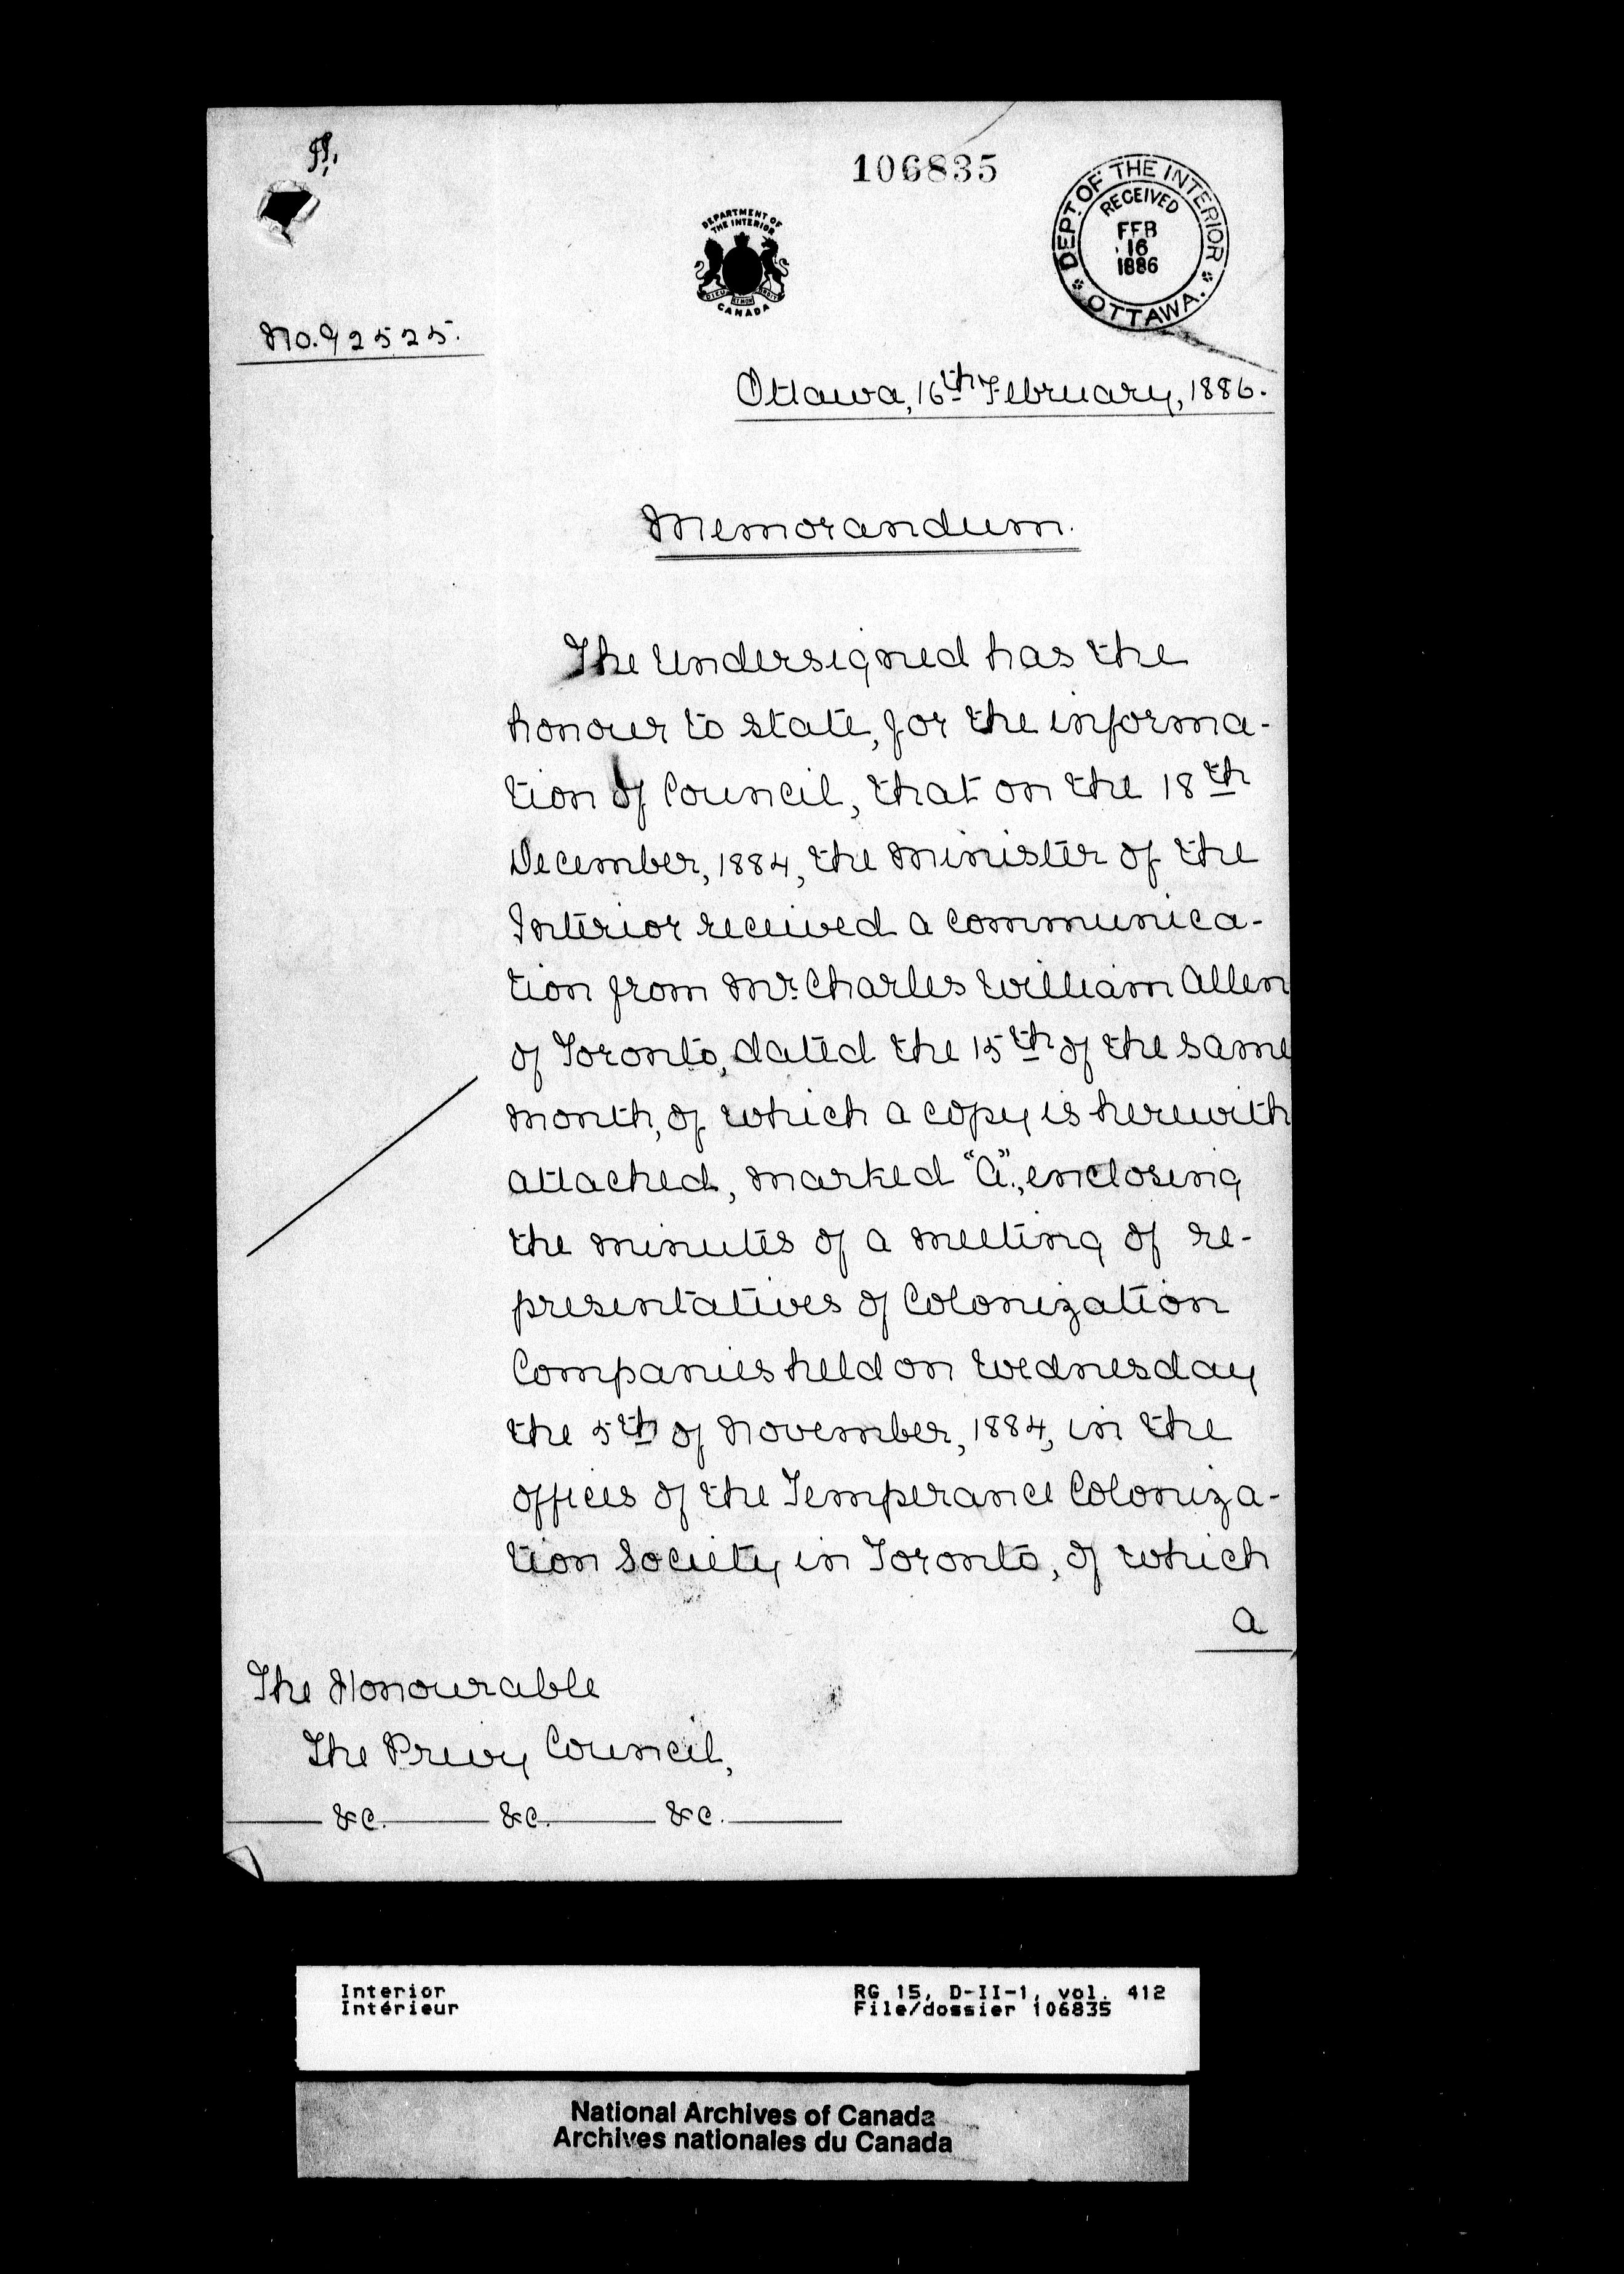 106835
DEPT. OF THE INTERIOR
RECEIVED
FEB
16
1886
OTTAWA.
DEPARTMENT OF
THE INTERIOR
CANADA
No. 92525.
Ottawa, 16th February, 1886.
Memorandum.
The Undersigned has the
honour to state, for the informa-
tion of Council, that on the 18th
December, 1884, the Minister of the
Interior received a communica-
tion from Mr. Charles William Allen
of Toronto, dated the 15th of the same
month, of which a copy is herewith
attached, marked "A", enclosing
the minutes of a meeting of re-
presentatives of Colonization
Companies held on Wednesday
the 5th of November, 1884, in the
offices of the Temperance Coloniza-
tion Society in Toronto, of which
a
The Honourable
The Privy Council,
&c. &c. &c.
Interior
Intérieur
RG 15, D-II-1, vol. 412
File/dossier 106835
National Archives of Canada
Archives nationales du Canada